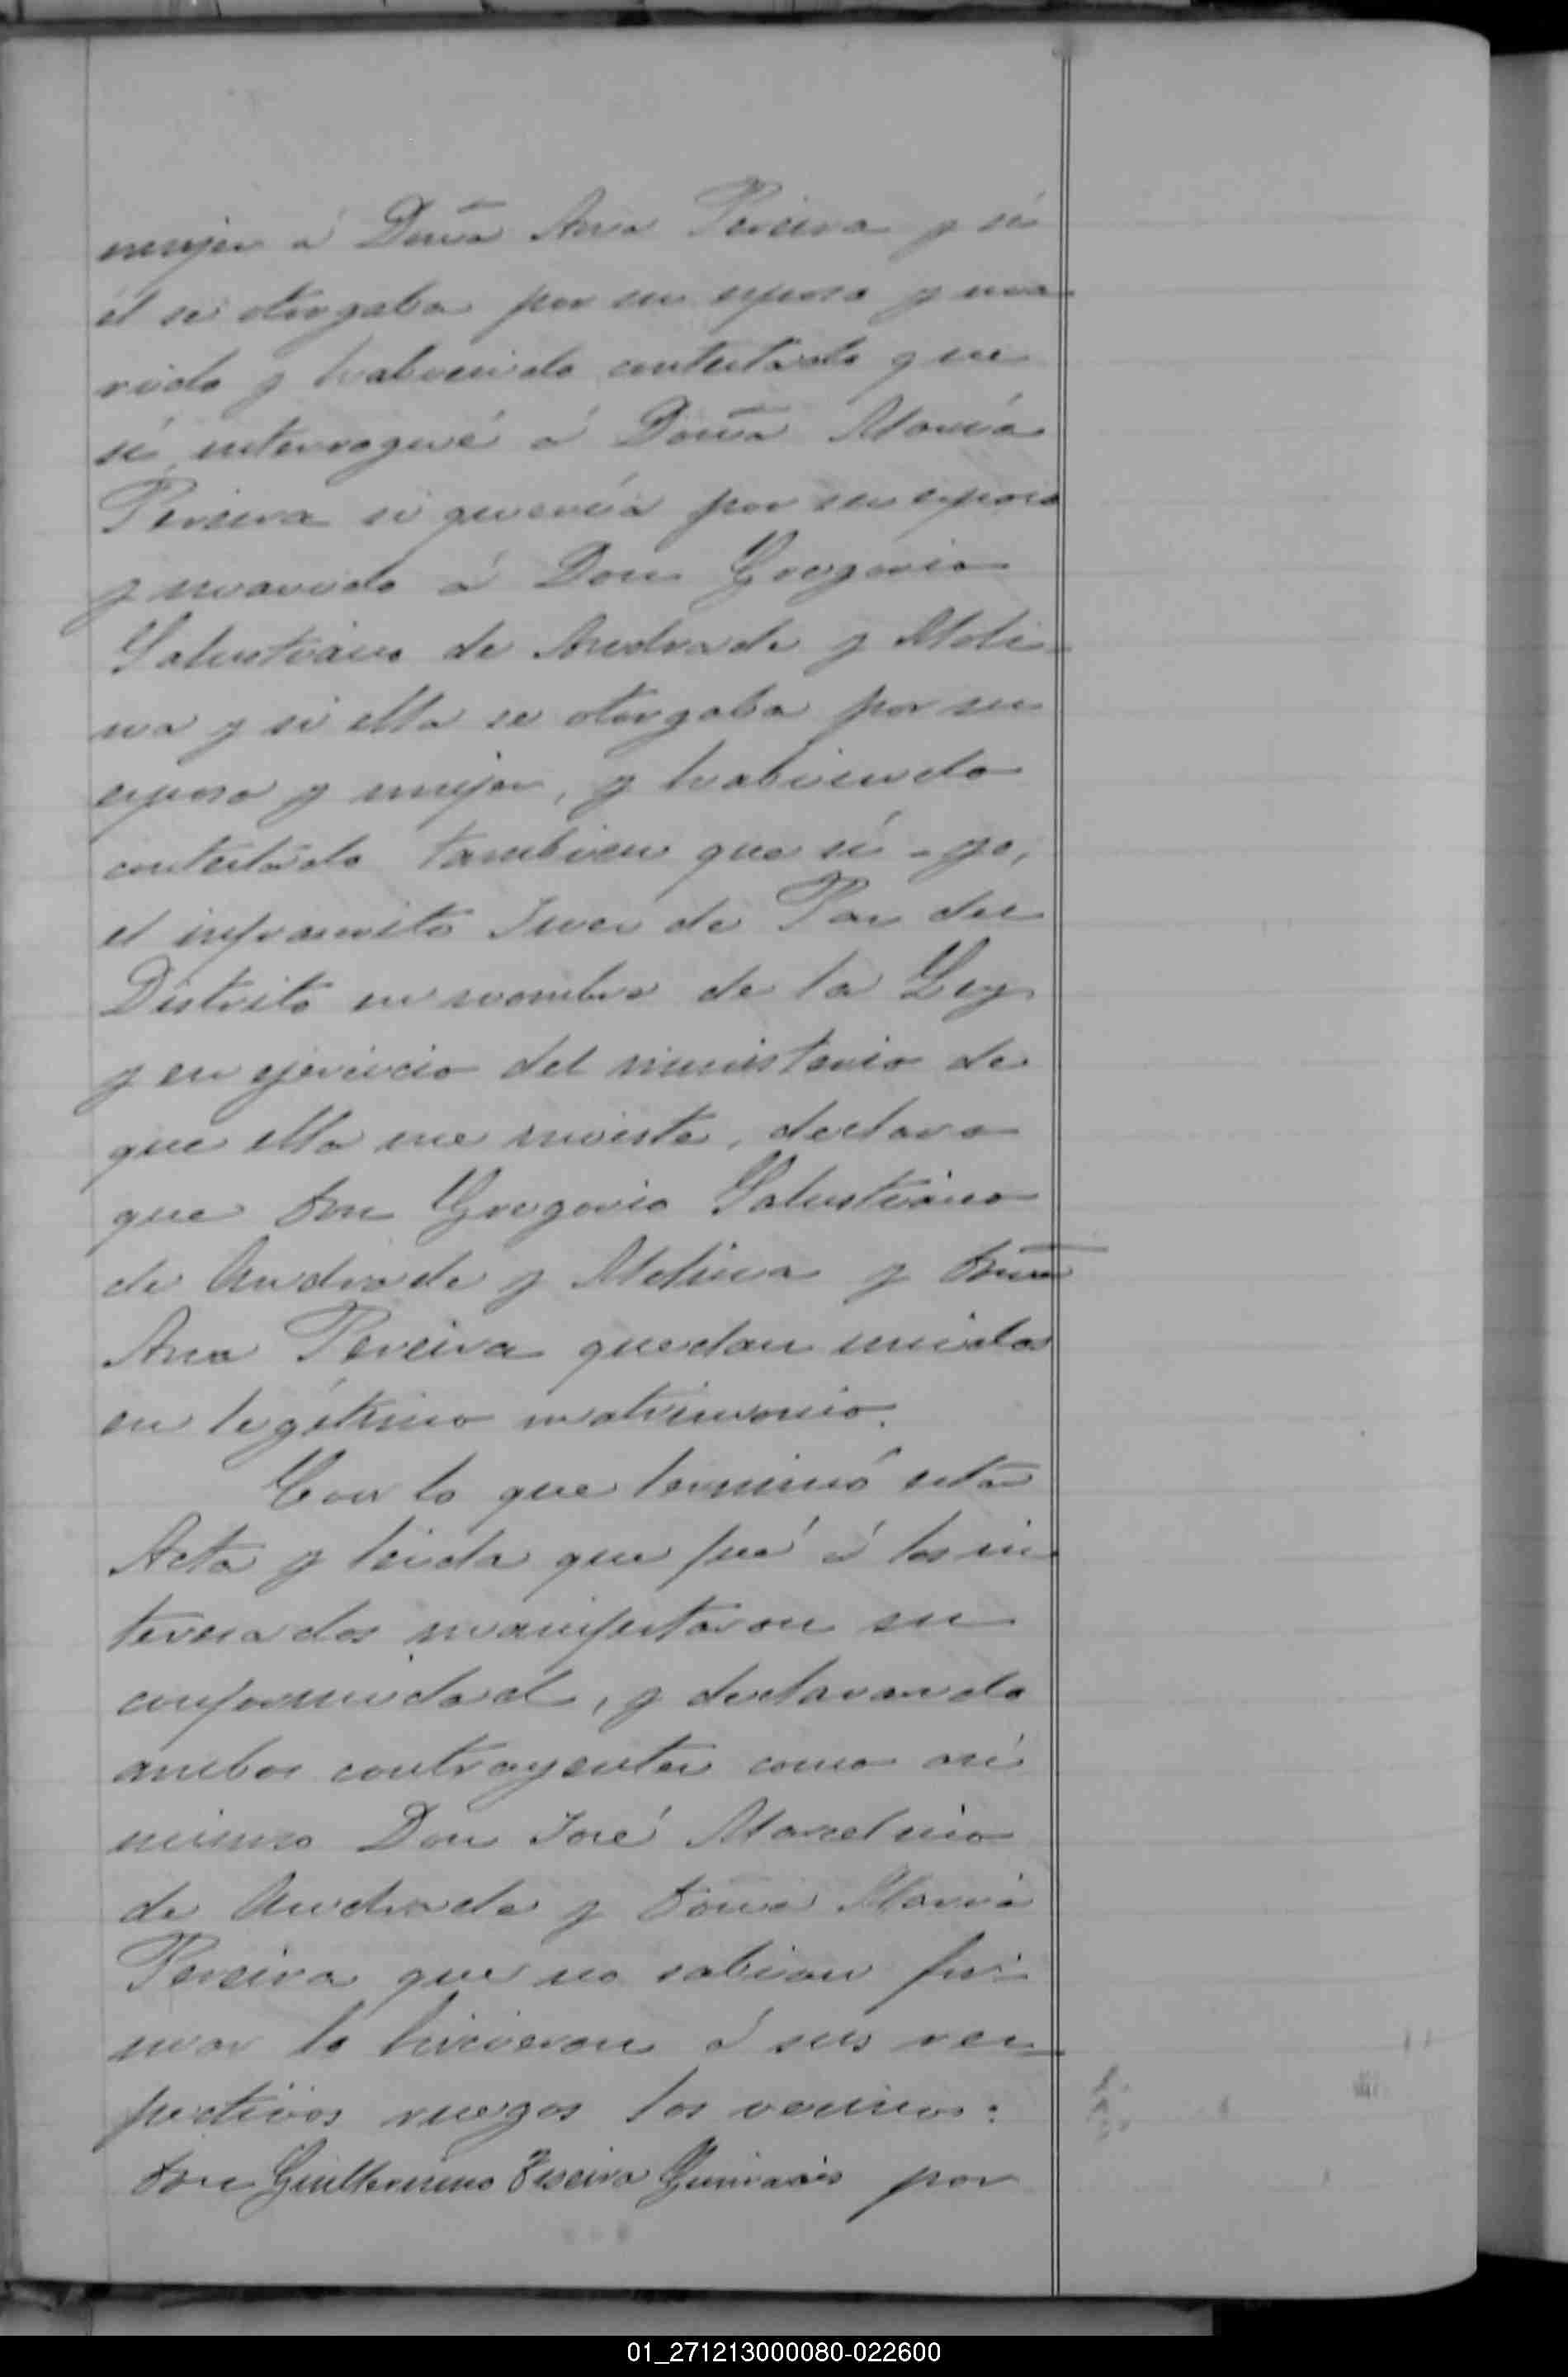 mujer á Doña Ana Pereira y si
él se otorgaba por su esposo y ma-
rido y habiendo contestado que
sí interrogué á Doña María
Pereira si quería por su esposo
y marido á Don Gregorio
Salustiano de Andrade y Moli-
na y si ella se otorgaba por su
esposa y mujer, y habiendo
contestado tambien que sí - yo,
el infrascrito Juez de Paz del
Distrito en nombre de la Ley
y en ejercicio del ministerio de
que ella me inviste, declaro
que Don Gregorio Salustiano
de Andrade y Molina y Doña
Ana Pereira quedan unidos
en legítimo matrimonio.
Con lo que terminó esta
Acta y leida que fué á los in-
teresados manifestaron su
conformidad, y declarando
ambos contrayentes como asi
mismo Don José Marcelino
de Andrade y Doña María
Pereira que no sabian fir-
mar lo hicieron á sus res-
pectivos ruegos los vecinos:
Don Guillermino Pereira por
01_271213000080-022600